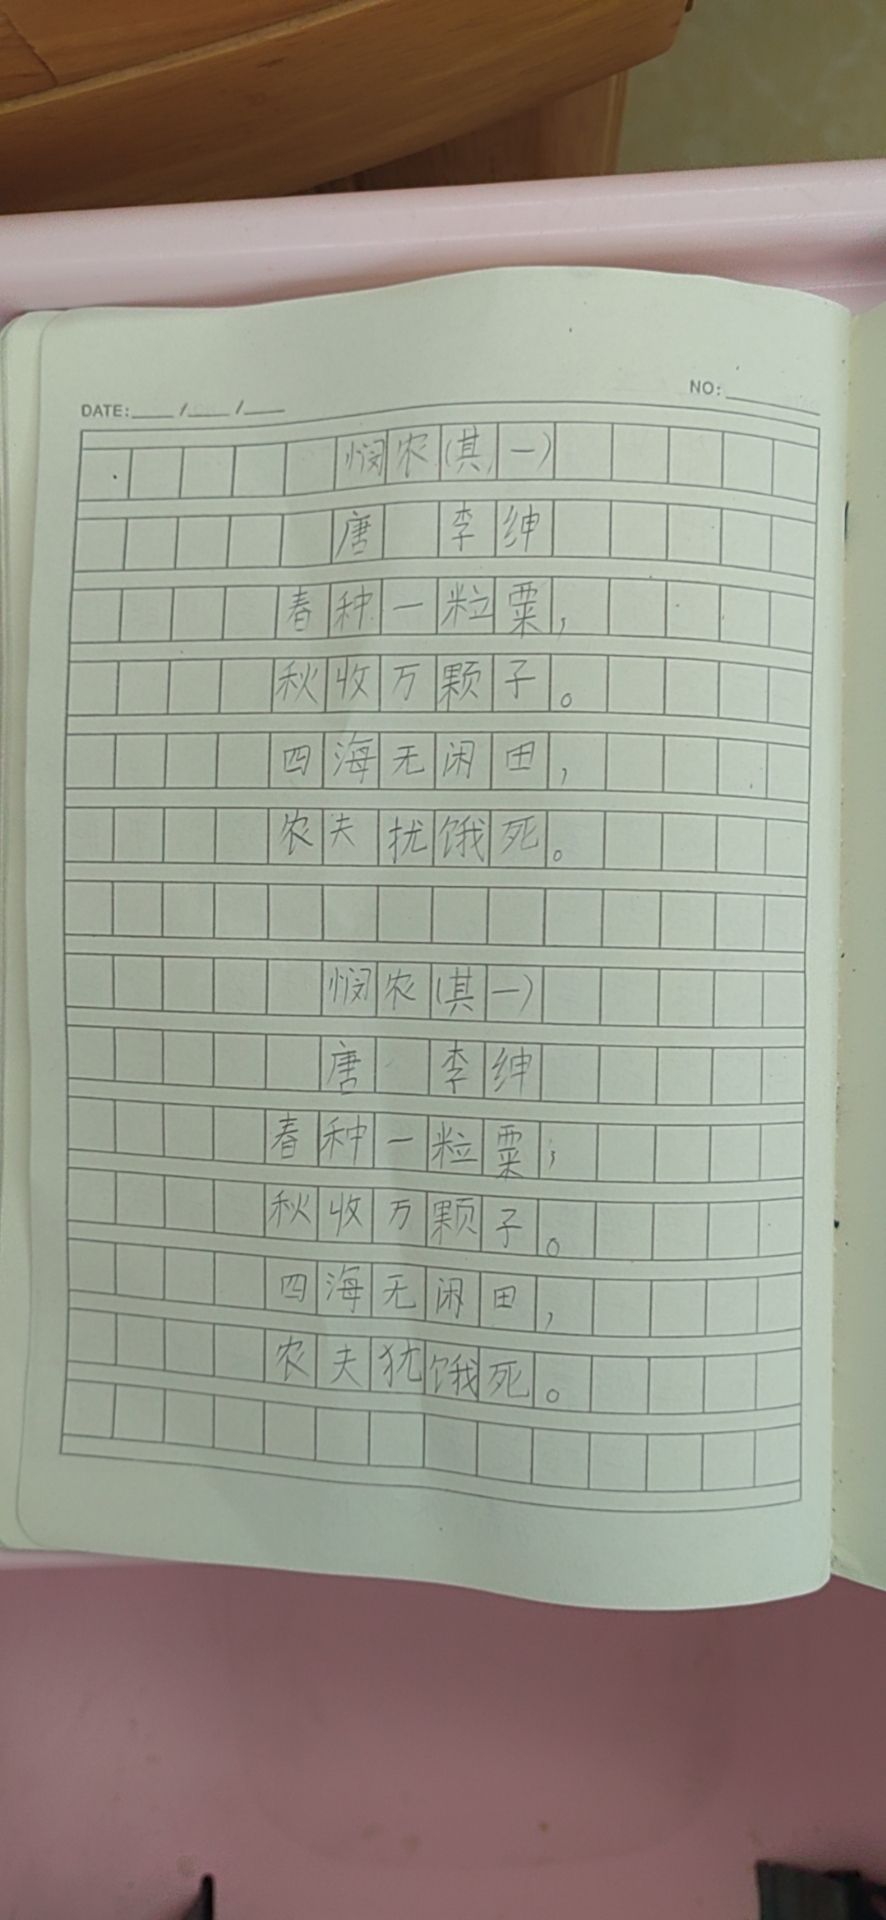 DATE: / /
NO:
悯农(其一)
唐 李绅
春种一粒粟,
秋收万颗子。
四海无闲田,
农夫扰饿死。
悯农(其一)
唐 李绅
春种一粒粟;
秋收万颗子。
四海无闲田,
农夫犹饿死。